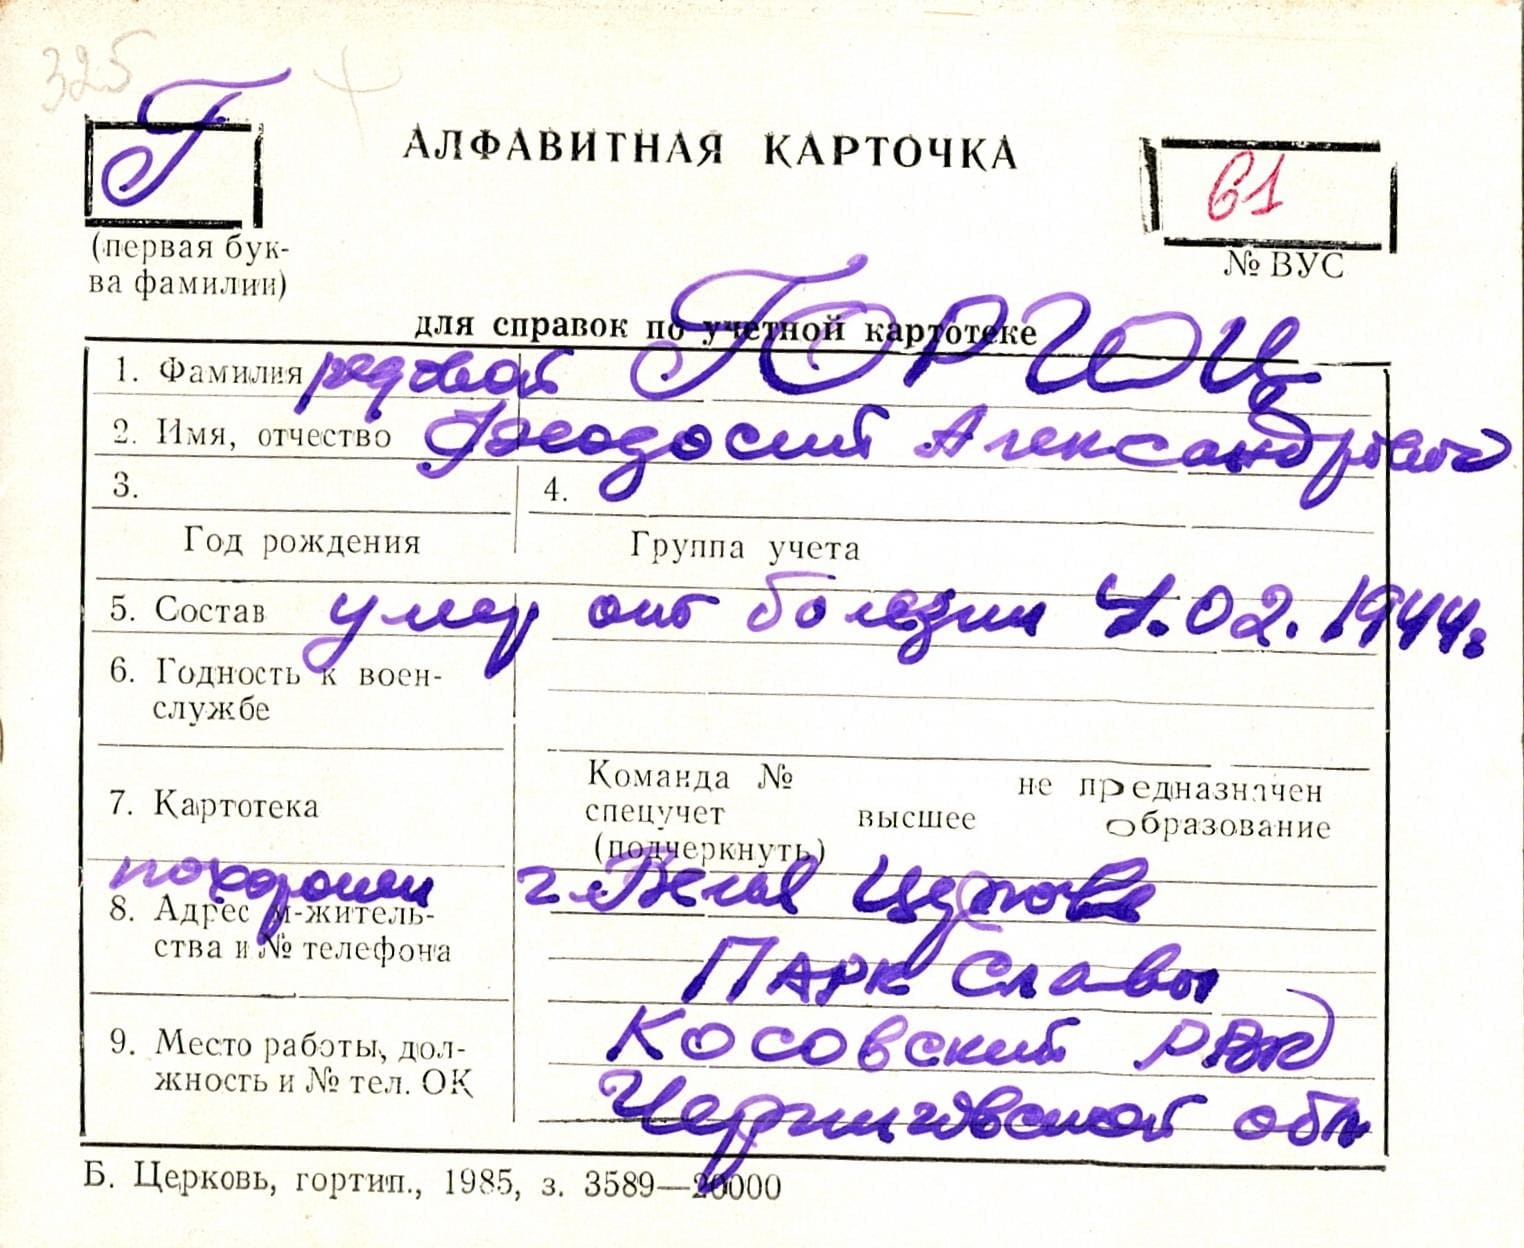 325
Г
АЛФАВИТНАЯ КАРТОЧКА
61
(первая бук-
ва фамилии)
№ ВУС
для справок по учетной картотеке
1. Фамилия рядовой ГОРГОЦ
2. Имя, отчество Феодосий Александрович
3. 4.
Год рождения Группа учета
5. Состав умер от болезни 4.02.1944г.
6. Годность к воен-
службе
7. Картотека
Команда № не предназначен
спецучет высшее образование
(подчеркнуть)
похоронен г. Белая Церковь
8. Адрес м-житель-
ства и № телефона
Парк Славы
9. Место работы, дол-
жность и № тел. ОК
Косовский РВК
Черниговской обл
Б. Церковь, гортип., 1985, з. 3589—20000